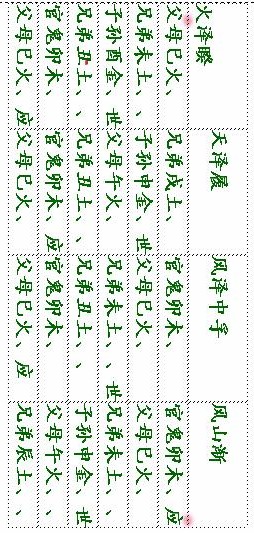 火泽睽 天泽履 风泽中孚 风山渐
父母巳火、 兄弟戌土、 官鬼卯木、 官鬼卯木、应
兄弟未土、、 子孙申金、世 父母巳火、 父母巳火、
子孙酉金、世 父母午火、 兄弟未土、、世 兄弟未土、、
兄弟丑土、、 兄弟丑土、、 兄弟丑土、、 子孙申金、世
官鬼卯木、 官鬼卯木、应 官鬼卯木、 父母午火、、
父母巳火、应 父母巳火、 父母巳火、应 兄弟辰土、、